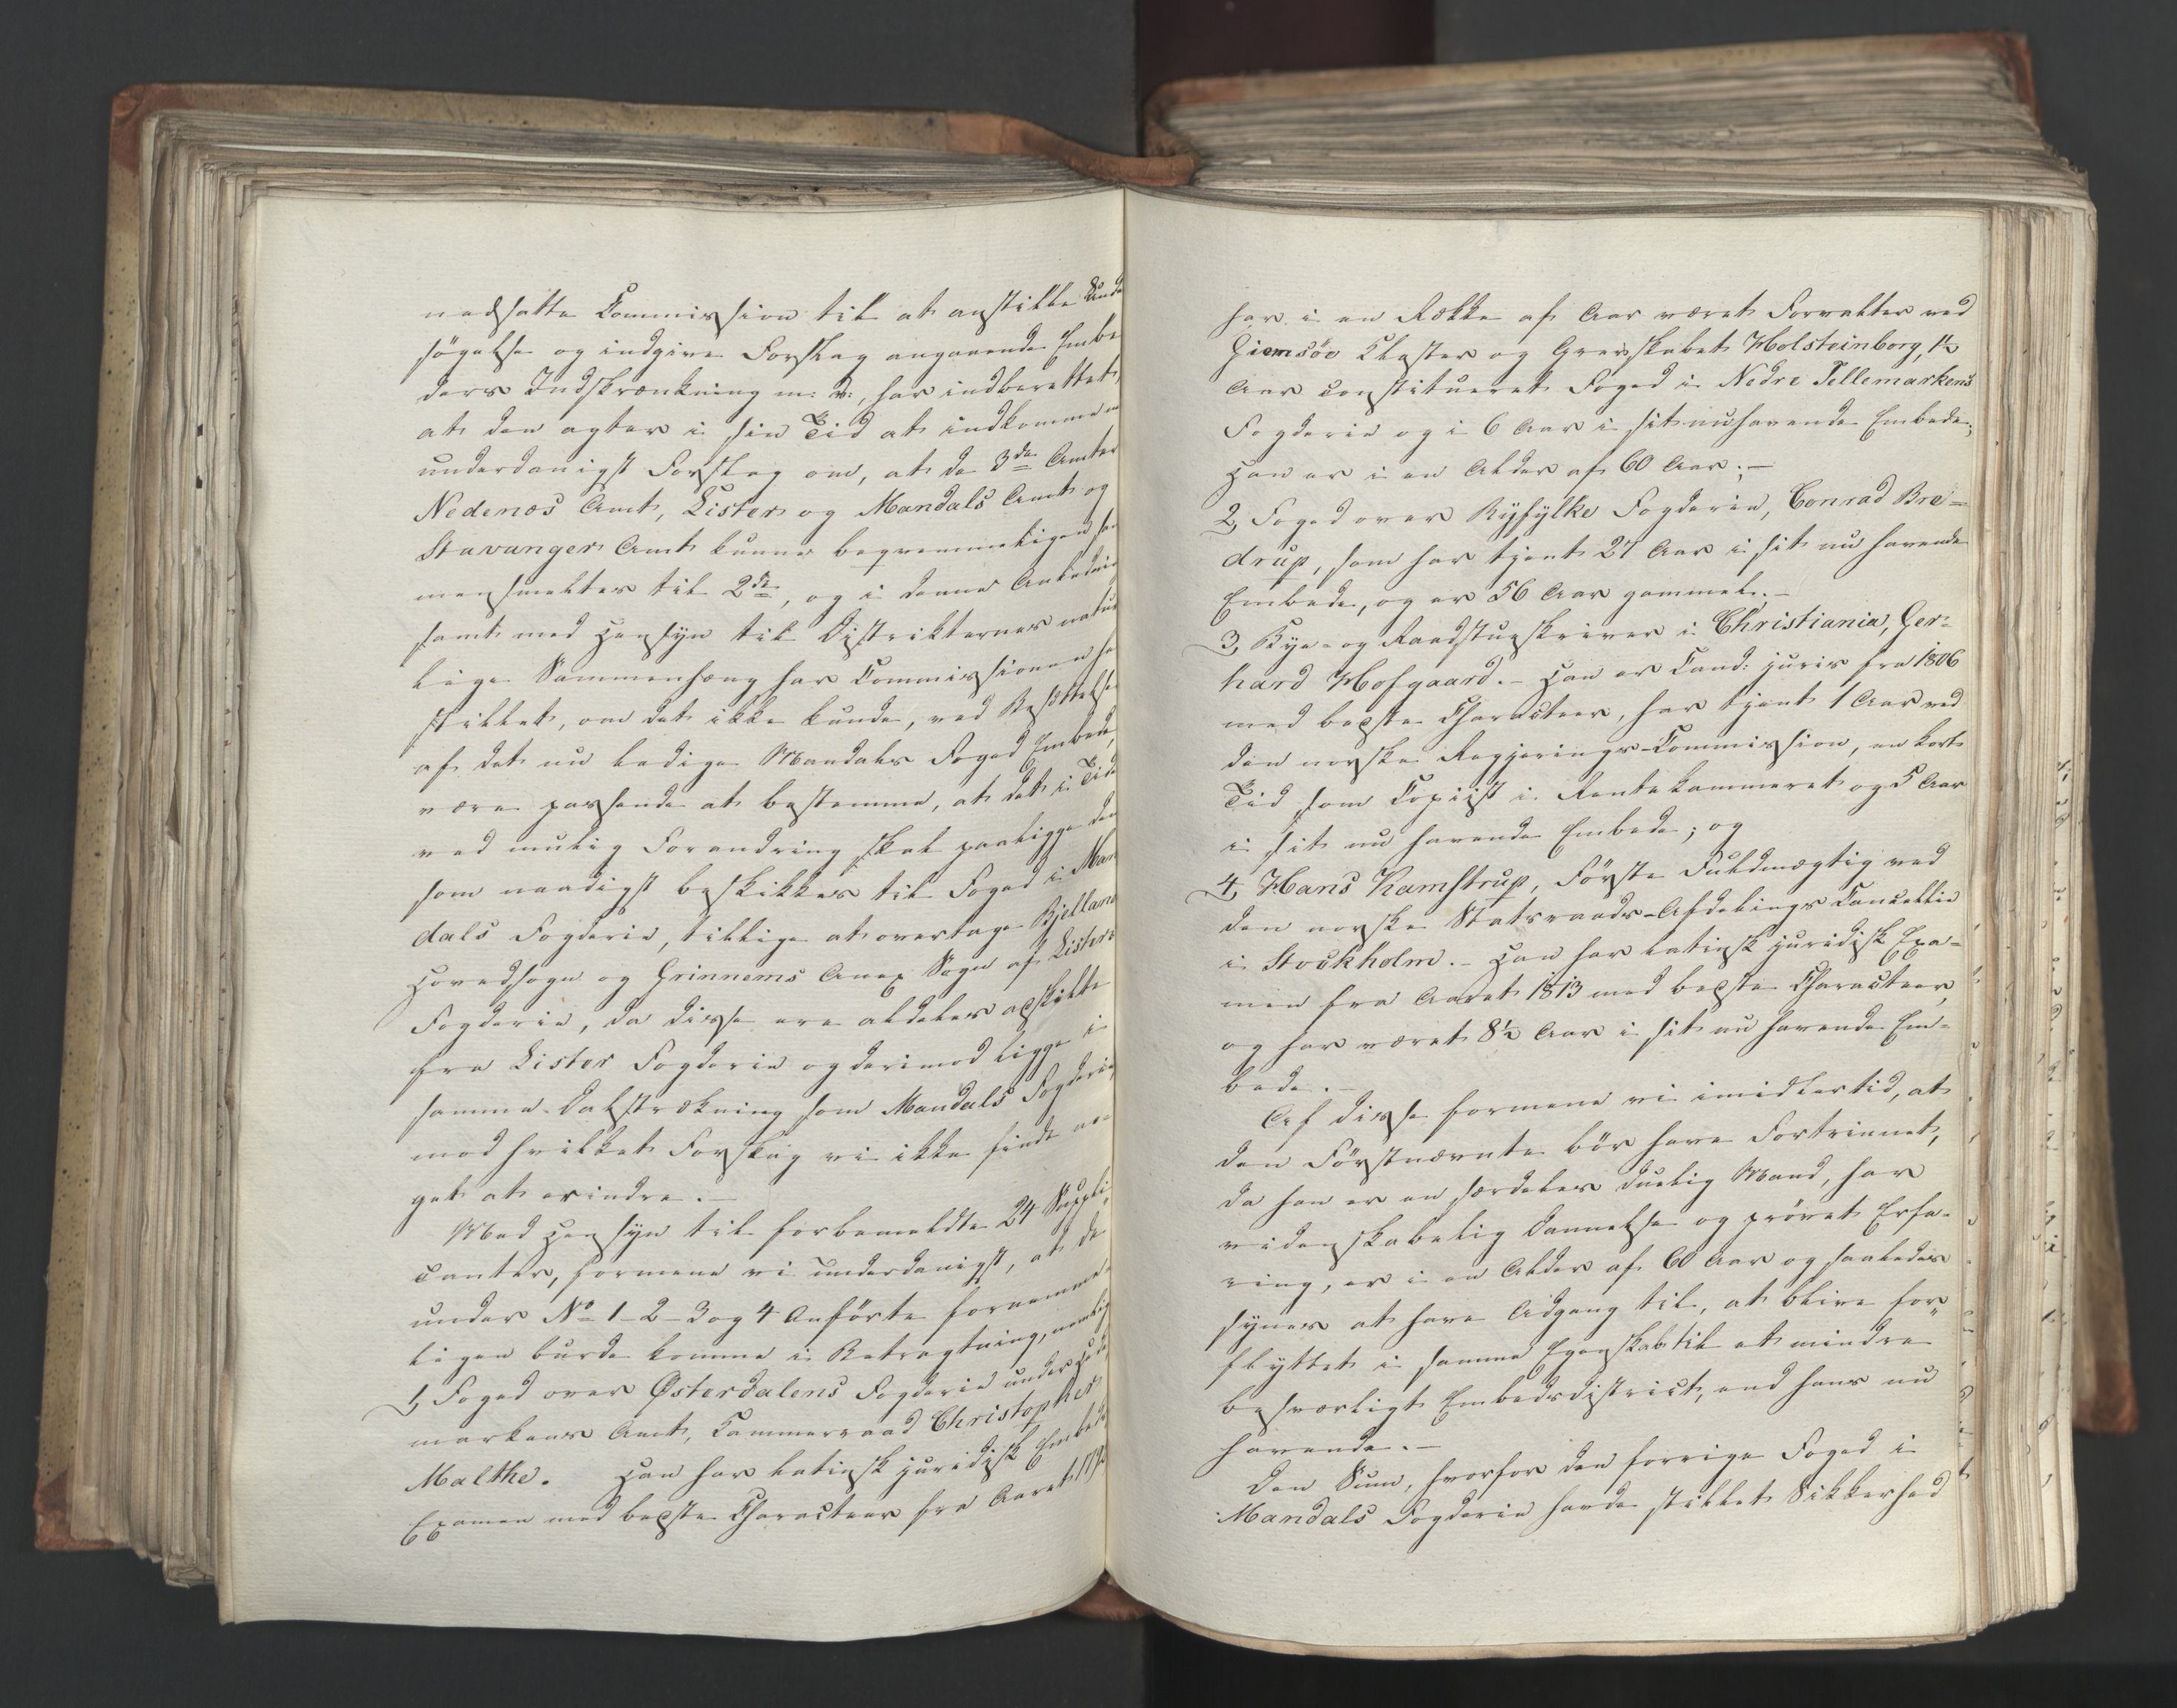 nedsatte Commission til at anstille Unde
søgelse og indgive Forslag angaaende Embe
ders Indskrænkning m: v:, har indberettet,
at den agter i sin Tid at indkomme m
underdanigst Forslag om, at de 3de Amter
Nedenæs Amt, Lister og Mandals Amt og
Stavanger Amt kunne beqvemmeligen sam
mensmeltes til 2de, og i denne Anledni
samt med Hensyn til Distrikternes natur
lige Sammenhæng har Commissionen fo
stillet, om det ikke kunde, ved Besættelse
af det nu ledige Mandals Foged Embede,
være passende at bestemme, at det i Tide
ved mulig Forandring skal paaligge den
som naadigst beskikkes til Foged i Man
dals Fogderie, tillige at overtage Bjelland
Hovedsogn og Grinnems Anex Sogn af Listers
Fogderie, da disse ere aldeles adskilte
fra Lister Fogderie og derimod ligge i
samme Dalstrækning som Mandals Fogderie,
mod hvilket Forslag vi ikke finde no-
get at erindre.-
Med Hensyn til forbemeldte 24 Suppli-
canter, formene vi underdanigst, at de
under No 1-2-3 og 4 Anførte fornemme-
ligen burde komme i Betragtning, nemlig
1, Foged over Østerdalens Fogderie under Hede
markens Amt, Kammerraad Christopher
Malthe. Han har latinsk juridisk Embeds
Examen med bedste Characteer fra Aaret 179
har i en Række af Aar været Forvalter ved
Giemsöe Kloster og Grevskabet Holsteinborg, 1½
Aar constitueret Foged i Nedre Tellemarkens
Fogderie og i 6 Aar i sit nuhavende Embede;
Han er i en Alder af 60 Aar;-
2, Foged over Ryfylke Fogderie, Conrad Bre-
drup, som har tjent 27 Aar i sit nu havende
Embede, og er 56 Aar gammel.-
3, Bye- og Raadstueskriver i Christiania, Ger-
hard Hofgaard.- Han er Cand: juris fra 1806
med bedste Characteer, har tjent 1 Aar ved
den norske Regjerings-Commission, en kort
Tid som Copiist i Rentekammeret og 5 Aar
i sit nu havende Embede; og
4, Hans Kamstrup, Første Fuldmægtig ved
den norske Statsraads-Afdelings Cancellie
i Stockholm.- Han har latinsk juridisk Exa-
men fra Aaret 1813 med bedste Characteer,
og har været 8½ Aar i sit nu havende Em-
bede.-
Af disse formene vi imidlertid, at
den Førstnævnte bør have Fortrinnet,
da han er en særdeles duelig Mand, har
videnskabelig Dannelse og prøvet Erfa-
ring, er i en Alder af 60 Aar og saaledes
synes at have Adgang til, at blive for-
flyttet i samme Egenskab til et mindre
besværligt Embedsdistrict, end hans nu
havende.-
Den Sum, hvorfor den forrige Foged i
Mandals Fogderie havde stillet Sikkerhed